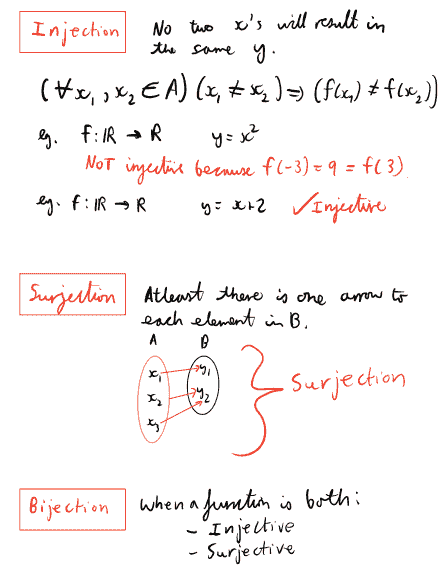 Injection No two x's will result in
the same y.
(∀x₁, x₂ ∈ A) (x₁ ≠ x₂) ⇒ (f(x₁) ≠ f(x₂))
eg. f: ℝ → ℝ y = x²
NOT injective because f(-3) = 9 = f(3)
eg. f: ℝ → ℝ y = x+2 ✓Injective
Surjection Atleast there is one arrow to
each element in B.
A B
x₁ y₁
x₂ y₂
x₃
Surjection
Bijection When a function is both:
- Injective
- Surjective